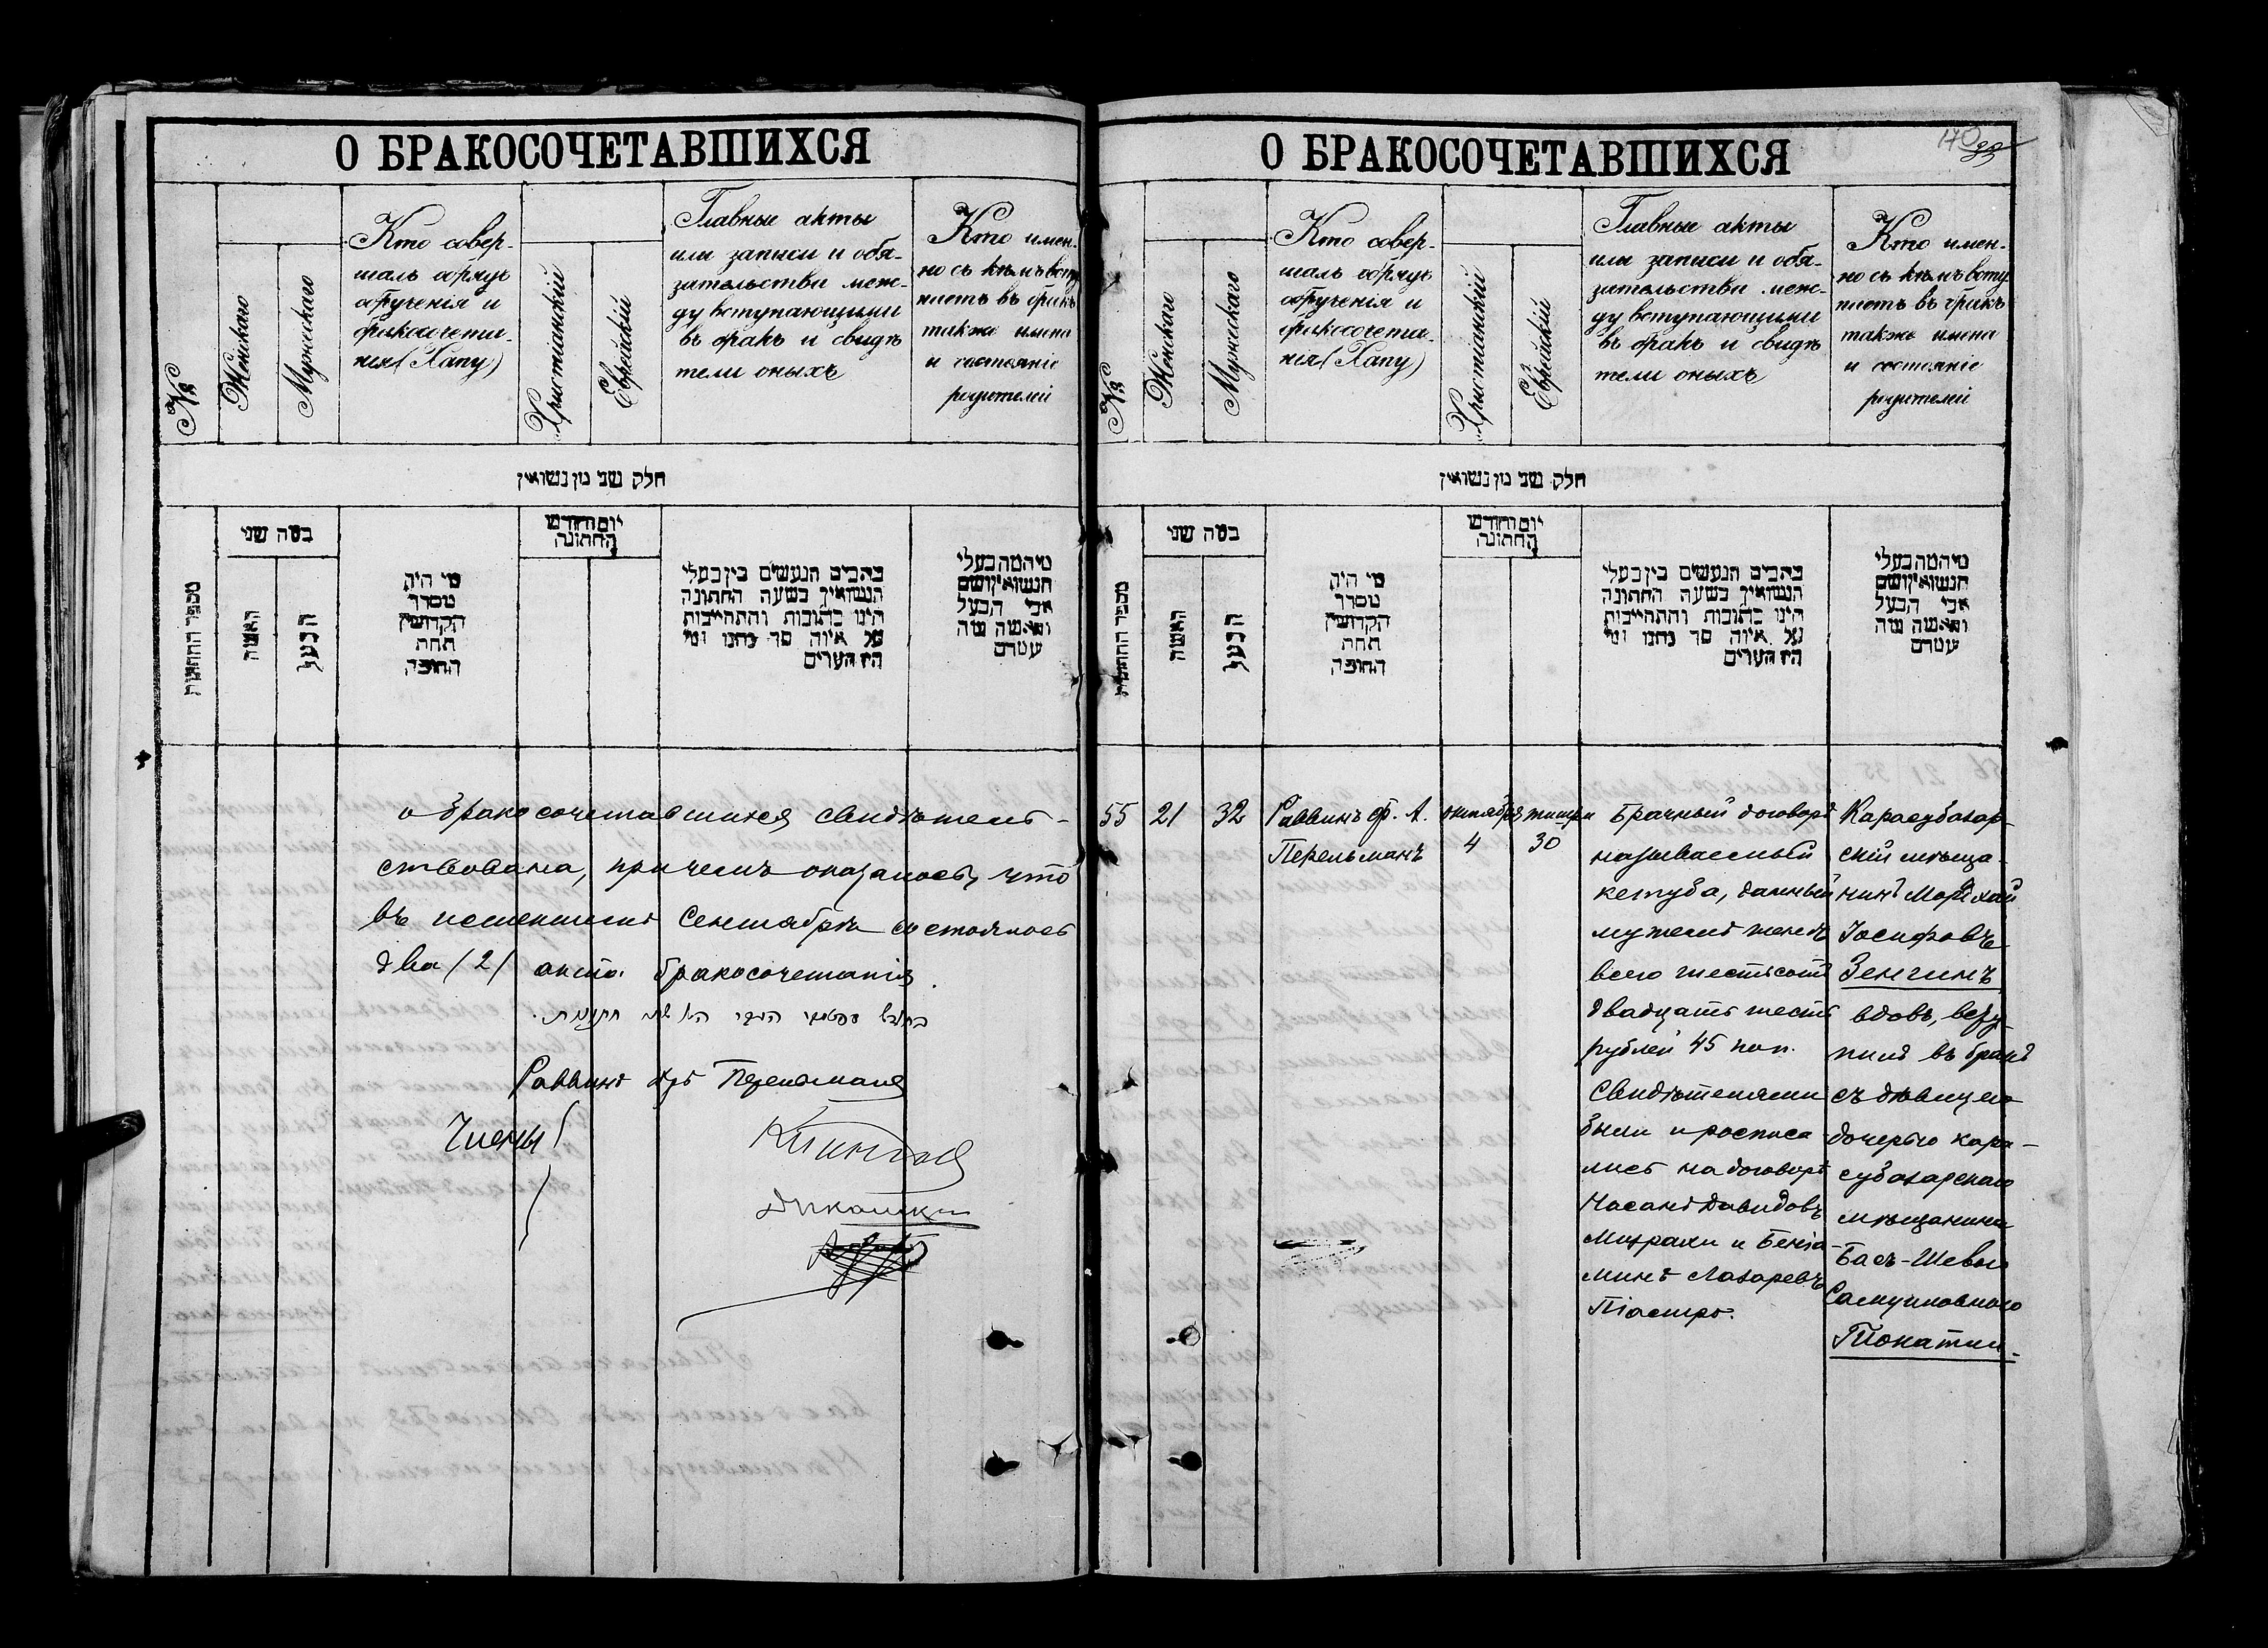 О БРАКОСОЧЕТАВШИХСЯ
№
Женскаго
Мужескаго
Кто совер-
шалъ обрядъ
обрученія и
бракосочета-
нія (Хапу)
Христіанскій
Еврейскій
Главные акты
или записи и обя-
зательства меж-
ду вступающими
въ бракъ и свидѣ
тели оныхъ
Кто имен-
но съ кѣмъ всту
паетъ въ бракъ
также имена
и состояніе
родителей
חלק שני מן נשואין
מספר החתונות
במה שני
האשה
הבעל
מי היה
מסדר
הקדושין
תחת
החופה
יום וחודש
החתונה
כתבים הנעשים בין בעלי
הנשואין בשעה החתונה
היינו כתובות והתחייבות
על איזה סך נתנו ומי
היו העדים
מי המה בעלי
הנשואין ושם
אבי הבעל
והאשה ומה
עמדם
о бракосочетавшихся свидѣтель-
ствована, причемъ оказалось, что
въ истекшемъ Сентябрѣ состоялось
два /2/ акта бракосочетанія.
Раввинъ др Перельманъ
Члены
О БРАКОСОЧЕТАВШИХСЯ
170
99
№
Женскаго
Мужескаго
Кто совер-
шалъ обрядъ
обрученія и
бракосочета-
нія (Хапу)
Христіанскій
Еврейскій
Главные акты
или записи и обя-
зательства меж-
ду вступающими
въ бракъ и свидѣ
тели оныхъ
Кто имен-
но съ кѣмъ всту
паетъ въ бракъ
также имена
и состояніе
родителей
חלק שני מן נשואין
מספר החתונות
במה שני
האשה
הבעל
מי היה
מסדר
הקדושין
תחת
החופה
יום וחודש
החתונה
כתבים הנעשים בין בעלי
הנשואין בשעה החתונה
היינו כתובות והתחייבות
על איזה סך נתנו ומי
היו העדים
מי המה בעלי
הנשואין ושם
אבי הבעל
והאשה ומה
עמדם
55
21
32
Раввинъ Ф. А.
Перельманъ
октября
4
тишри
30
Брачный договоръ
называемый
кетуба, данный
мужемъ женѣ
всего шестьсотъ
двадцать шесть
рублей 45 коп.
Свидѣтелями
были и росписа
лись на договорѣ
Часанъ Давидовъ
Мизрахи и Беніа-
минъ Лазаревъ
Піастро.
Карасубазар-
скій мѣща-
нинъ Мордхай
Іосифовъ
Зенгинъ
вдовъ, всту
пилъ въ бракъ
съ дѣвицею
дочерью кара-
субазарскаго
мѣщанина
Басъ-Шевою
Самуиловною
Токатли.